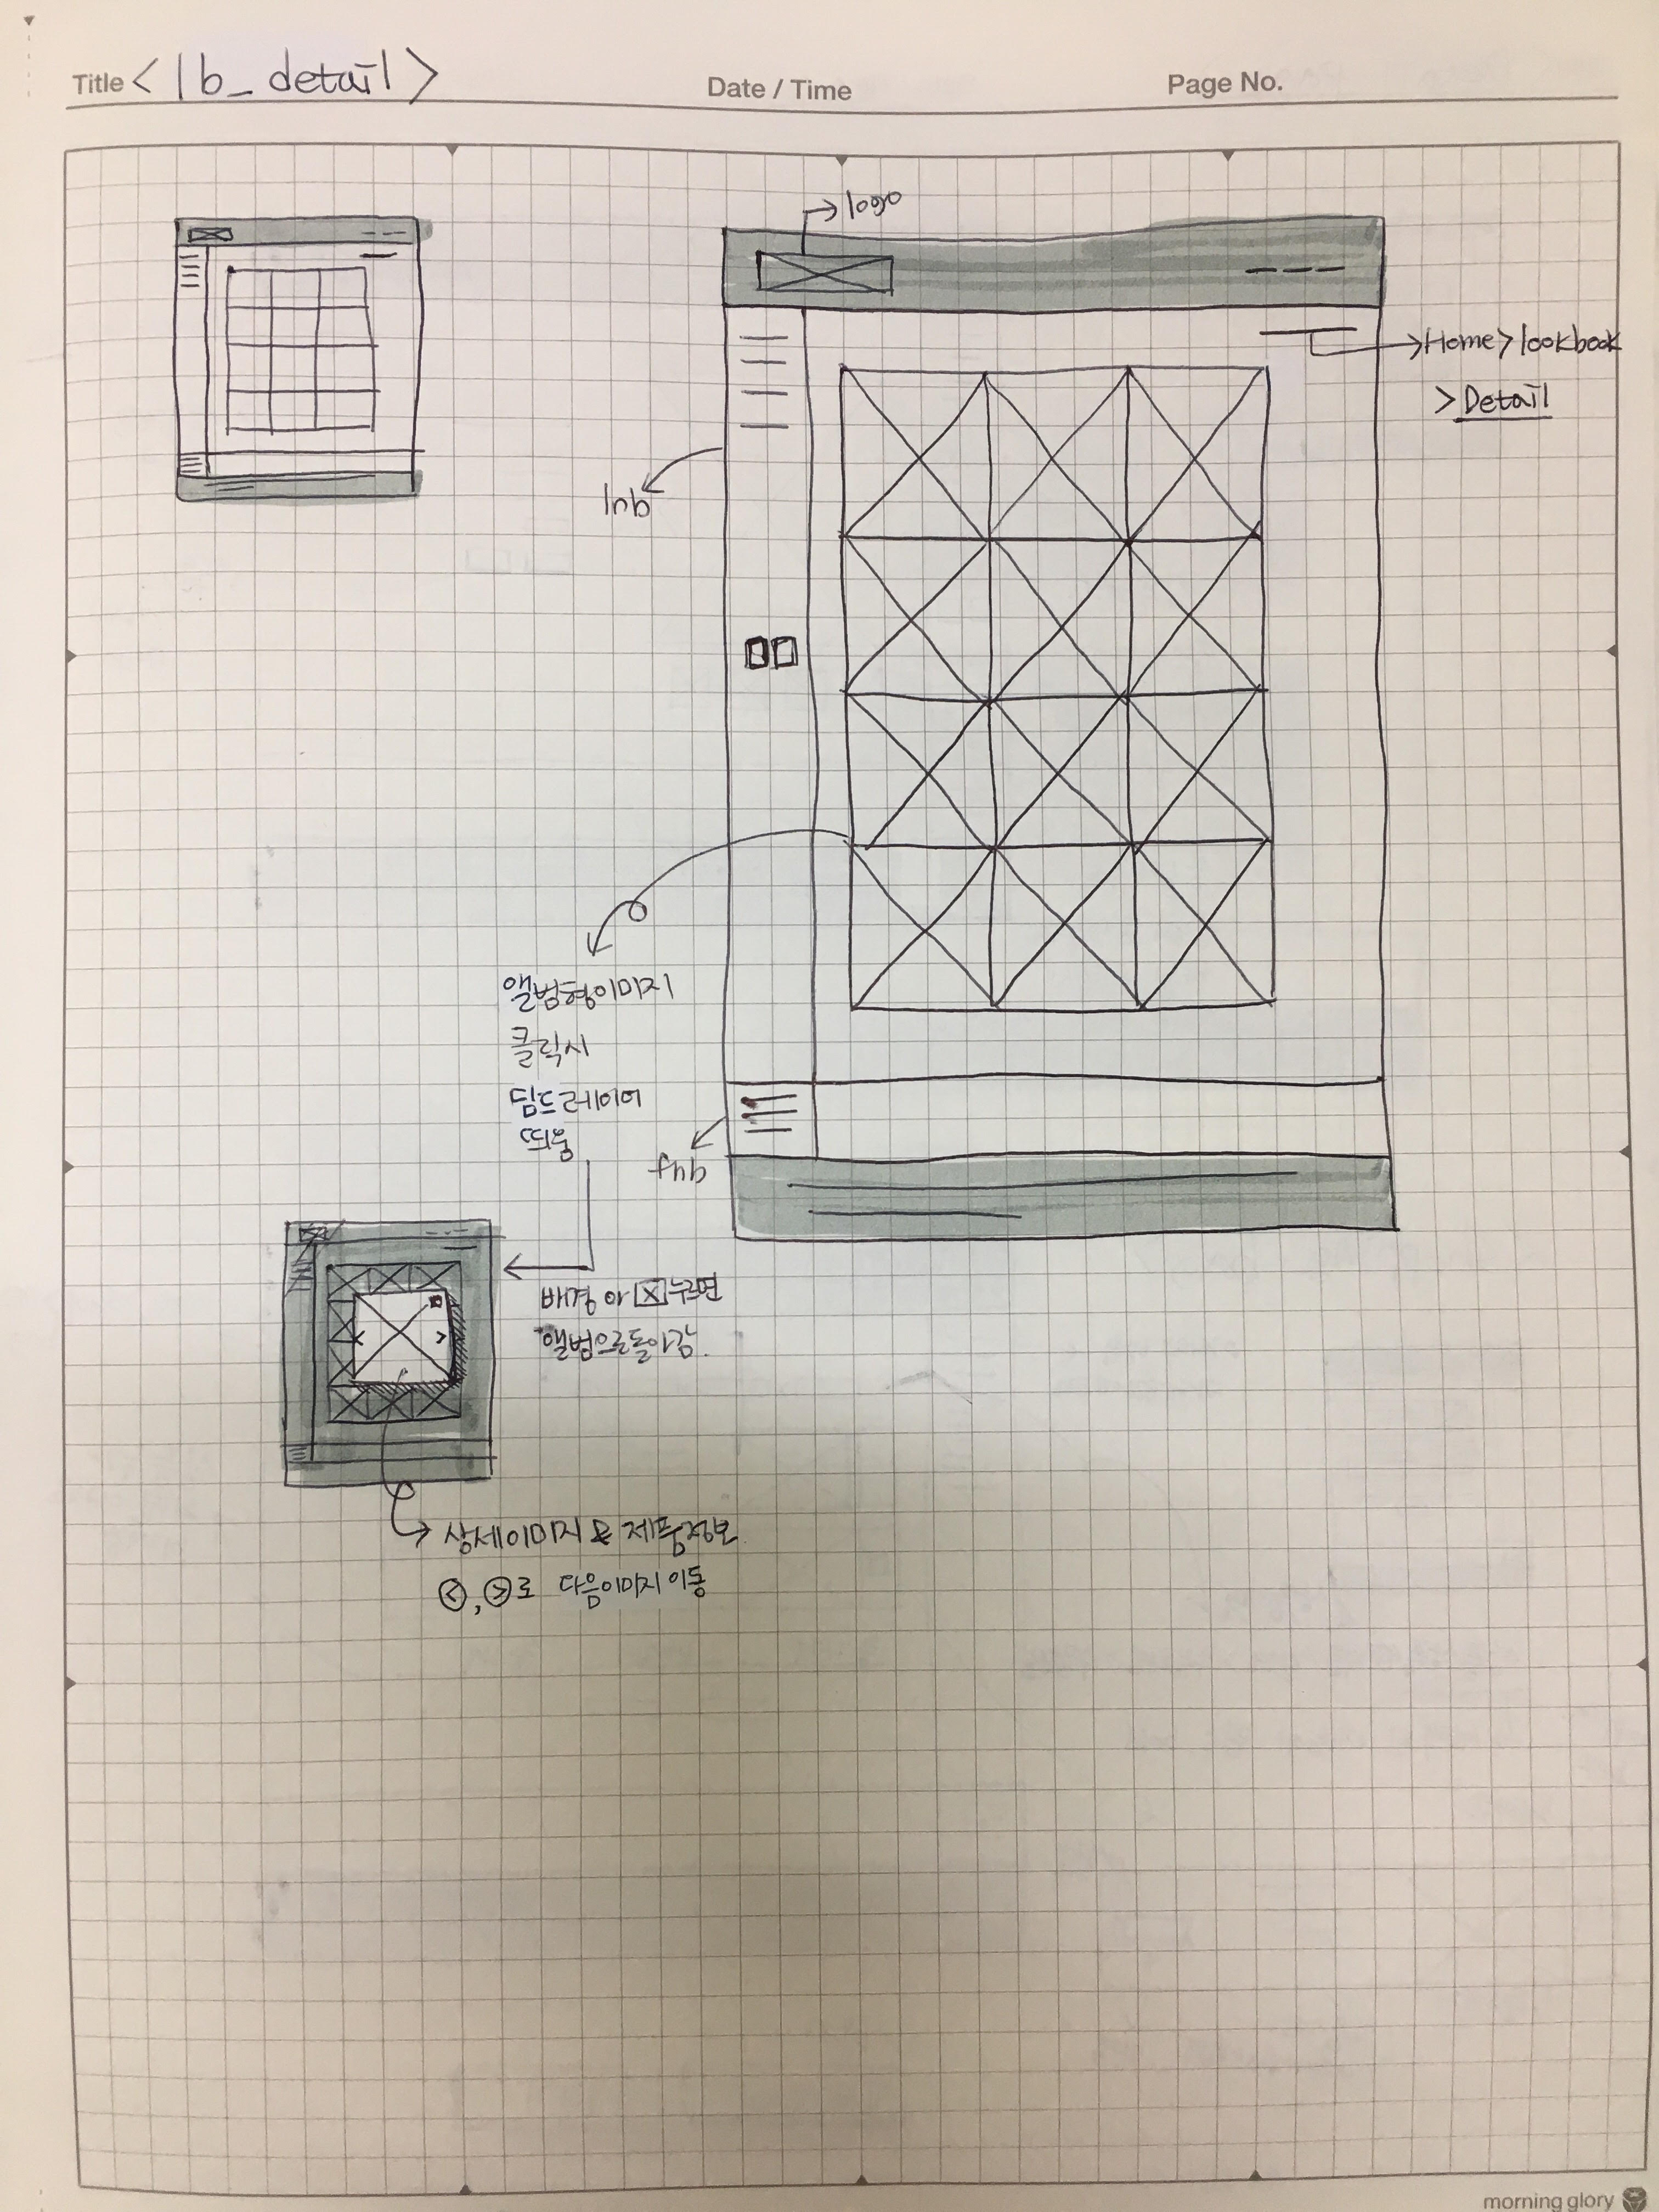 Title <lb_detail>
Date / Time
Page No.
logo
Home>lookbook
>Detail
lnb
앨범형이미지
클릭시
딤드레이어
띄움
fnb
배경 or X 누르면
앨범으로돌아감.
상세이미지 & 제품정보
<, >로 다음이미지 이동
morning glory